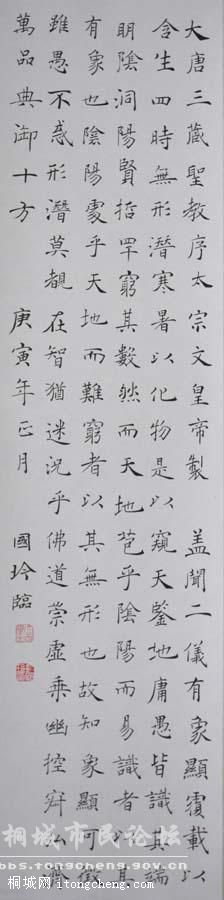 大唐三藏聖教序太宗文皇帝製 蓋聞二儀有象顯覆載以
含生四時無形潛寒暑以化物是以窺天鑒地庸愚皆識其端
明陰洞陽賢哲罕窮其數然而天地苞乎陰陽而易識者以其
有象也陰陽處乎天地而難窮者以其無形也故知象顯可徵
雖愚不惑形潛莫覩在智猶迷況乎佛道崇虛乘幽控寂弘濟
萬品典御十方 庚寅年正月 國玲臨
桐城市民论坛
桐城网 itongcheng.com